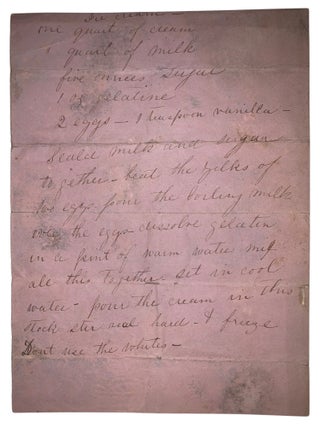 Ice cream —
one quart of cream
1 quart of milk
five ounces sugar
1 oz gelatine
2 eggs — 1 teaspoon vanilla —
Scald milk and sugar
together - beat the yelks of
two eggs pour the boiling milk
over the eggs - dissolve gelatin
in a pint of warm water mix
all this together set in cool
water - pour the cream in this
stock stir real hard - & freeze
Dont use the whites —